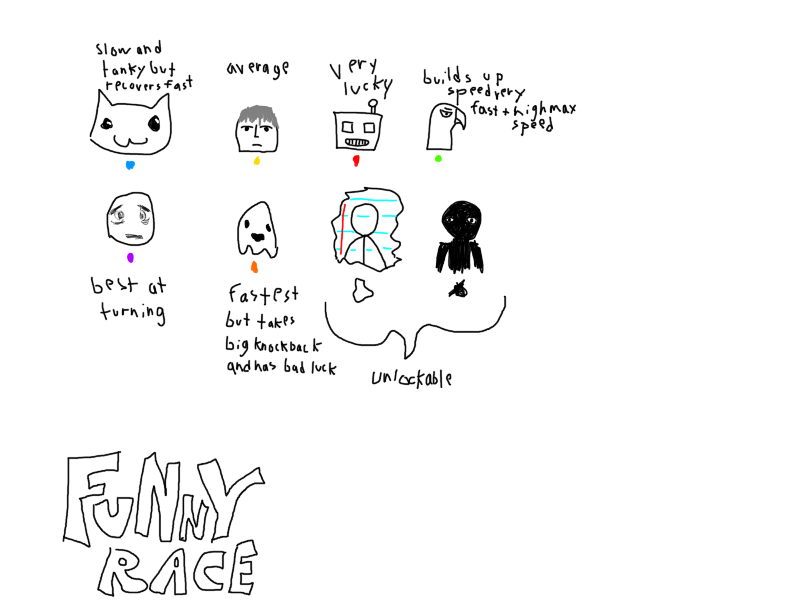 slow and
tanky but
recovers fast
average
Very
lucky
builds up
speed very
fast + high max
speed
best at
turning
fastest
but takes
big knockback
and has bad luck
unlockable
FUNNY
RACE